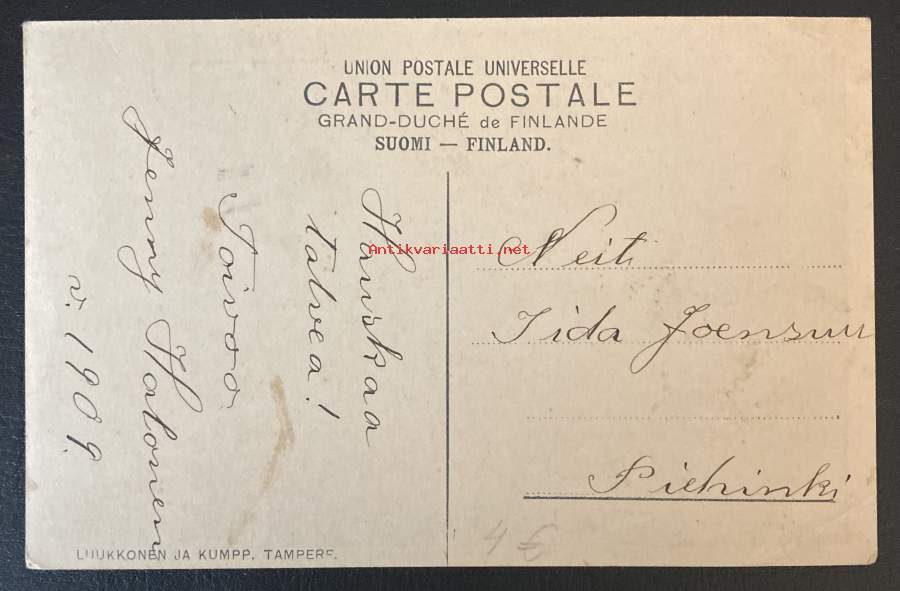 UNION POSTALE UNIVERSELLE
CARTE POSTALE
GRAND-DUCHÉ de FINLANDE
SUOMI — FINLAND.
Hauskaa
talvea!
Toivoo
Jenny Halonen
v. 1909.
Antikvariaatti.net
Neiti
Iida Joensuu
Piehinki
LUUKKONEN JA KUMPP. TAMPERE.
4 €